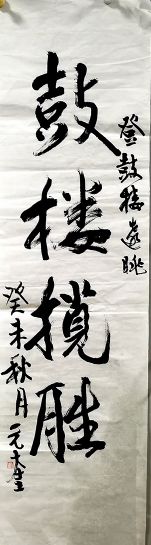 登鼓楼远眺
鼓楼揽胜
癸未秋月元